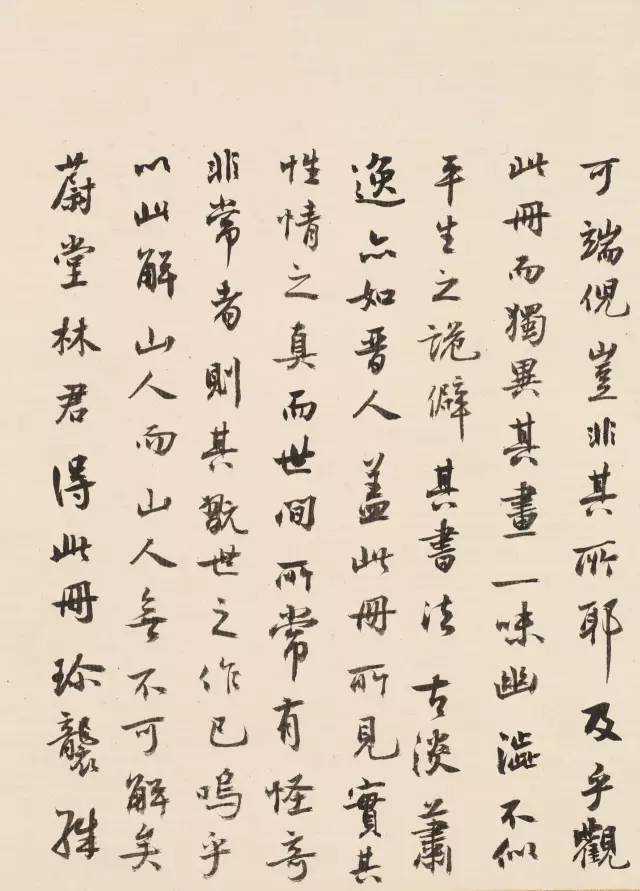 可端倪豈非其所耶及乎觀
此冊而獨異其畫一味幽澁不似
平生之詭僻其書法古淡蕭
逸亦如晋人蓋此冊所見實其
性情之真而世間所常有怪奇
非常者則其翫世之作已嗚乎
以此解山人而山人無不可解矣
蔚堂林君得此冊珍襲殊